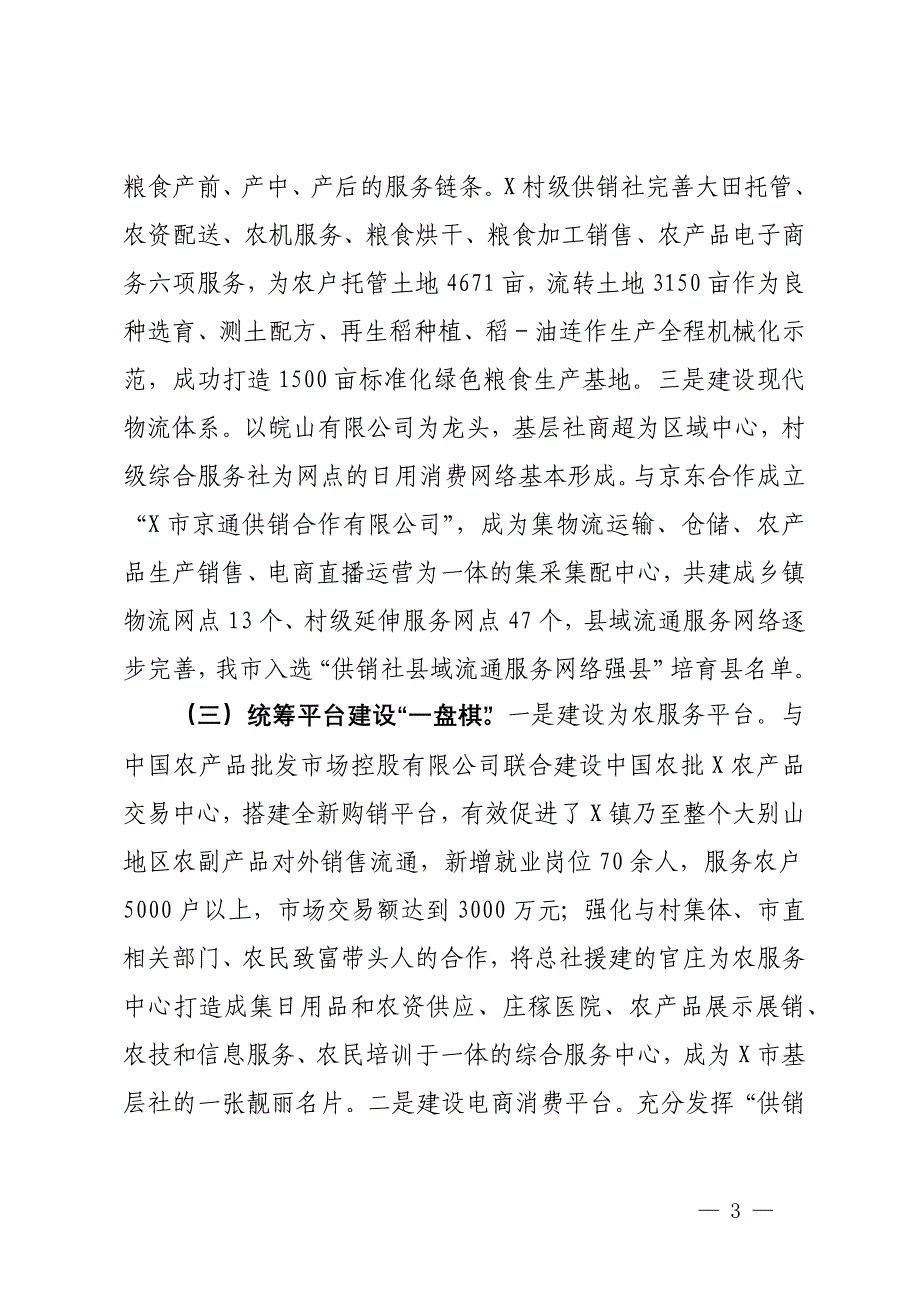 粮食产前、产中、产后的服务链条。X 村级供销社完善大田托管、
农资配送、农机服务、粮食烘干、粮食加工销售、农产品电子商
务六项服务，为农户托管土地 4671 亩，流转土地 3150 亩作为良
种选育、测土配方、再生稻种植、稻－油连作生产全程机械化示
范，成功打造 1500 亩标准化绿色粮食生产基地。三是建设现代
物流体系。以皖山有限公司为龙头，基层社商超为区域中心，村
级综合服务社为网点的日用消费网络基本形成。与京东合作成立
“X 市京通供销合作有限公司”，成为集物流运输、仓储、农产
品生产销售、电商直播运营为一体的集采集配中心，共建成乡镇
物流网点 13 个、村级延伸服务网点 47 个，县域流通服务网络逐
步完善，我市入选“供销社县域流通服务网络强县”培育县名单。
（三）统筹平台建设“一盘棋”。一是建设为农服务平台。与
中国农产品批发市场控股有限公司联合建设中国农批 X 农产品
交易中心，搭建全新购销平台，有效促进了 X 镇乃至整个大别山
地区农副产品对外销售流通，新增就业岗位 70 余人，服务农户
5000 户以上，市场交易额达到 3000 万元；强化与村集体、市直
相关部门、农民致富带头人的合作，将总社援建的官庄为农服务
中心打造成集日用品和农资供应、庄稼医院、农产品展示展销、
农技和信息服务、农民培训于一体的综合服务中心，成为 X 市基
层社的一张靓丽名片。二是建设电商消费平台。充分发挥“供销
— 3 —